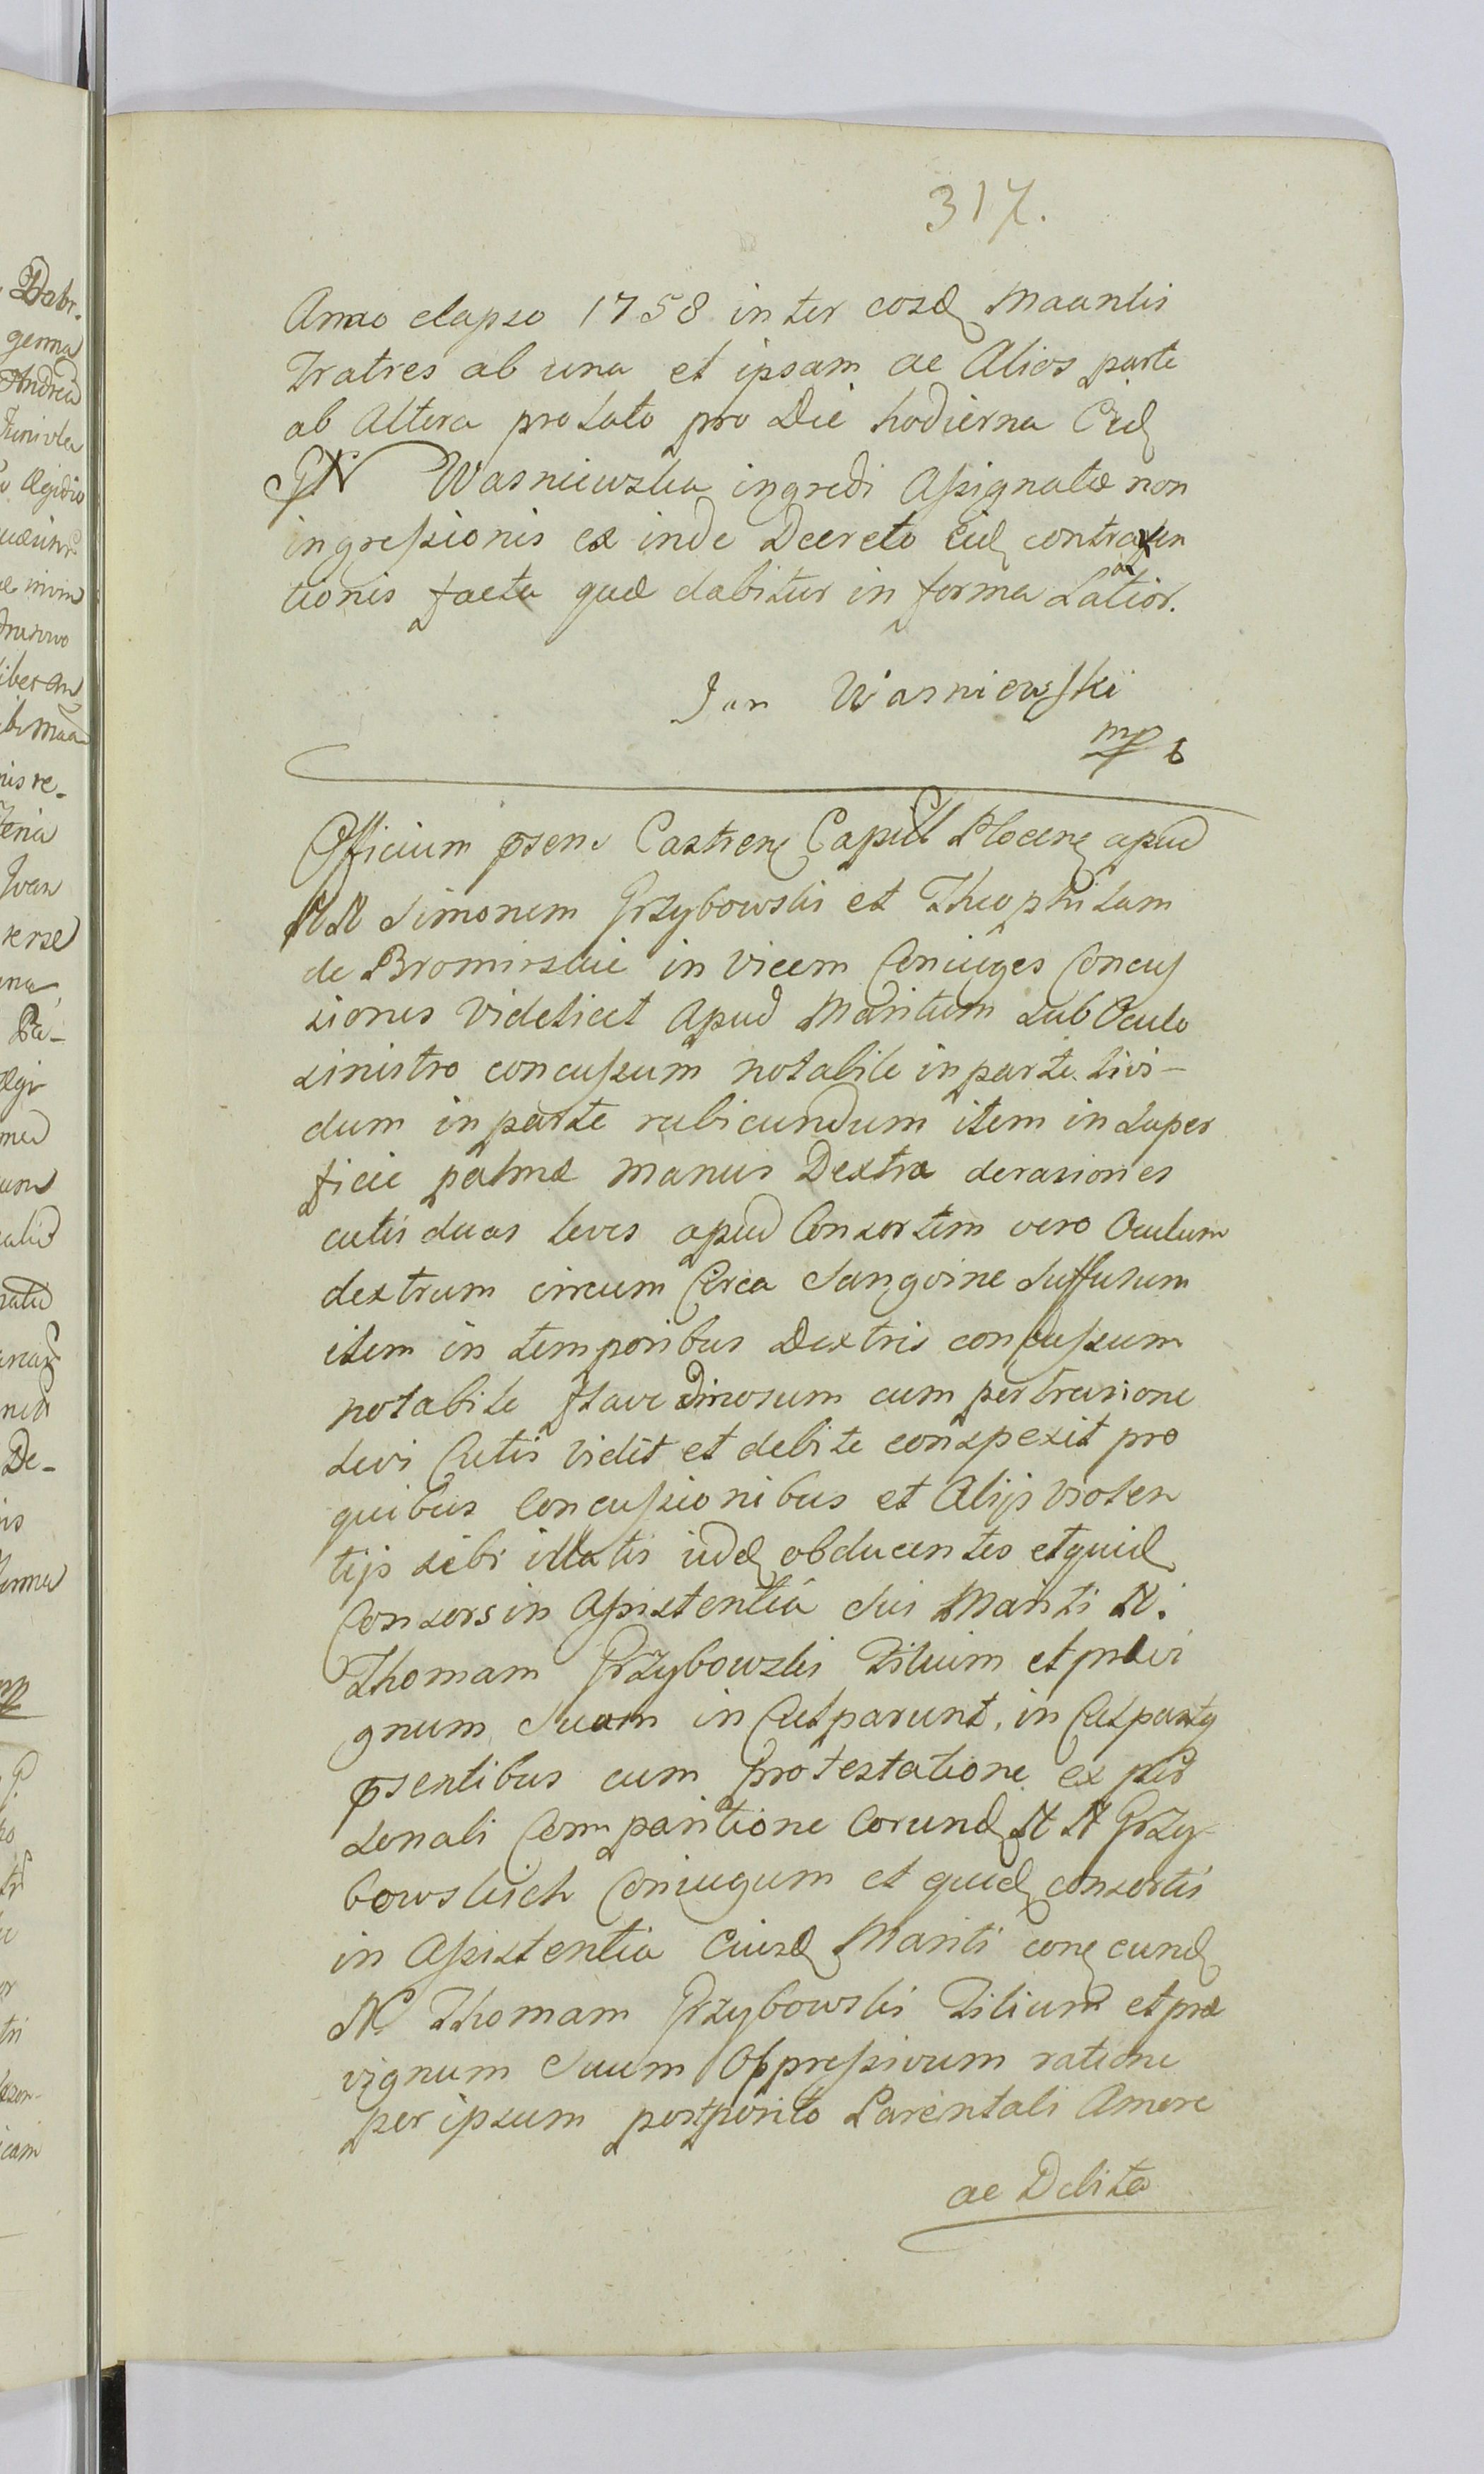 317.
Anno elapso 1758 inter eosd Maantis
Fratres ab una et ipsam ac Alios parte
ab Altera prolato pro Die hodierna Eid
GN Wasniewska ingredi Assignatæ non
ingressionis ex inde Decreto Eid contraven
tionis facta quæ dabitur in forma Latior.
Jan Wasniewski
mp
Officium psens Castrens Capitl Plocens apud
NN Simonem Grzybowski et Theophilam
de Bromirskie in vicem Coniuges Concus
siones videlicet apud Maritum sub Oculo
sinistro concussum notabile in parte livi-
dum in parte rubicundum item in super
ficie palmæ manus Dextræ derasiones
cutis duas leves apud Consortem vero Oculum
dextrum circum Circa Sangvine Suffusum
item in temporibus Dextris concussum
notabile flavedinosum cum pertrasione
levi Cutis vidit et debite conspexit pro
quibus Concussionibus et Alijs violen
tijs sibi illatis iid obducentes et quid
Consors in Assistentia Sui Mariti N.
Thomam Grzybowski Filium et previ
gnum Suum in Culparunt, in Culpantq
psentibus cum Protestatione ex per
sonali Comparitione Eorund N N Grzy
bowskich Coniugum et quid consortis
in Assistentia Eiusd Mariti con eund
N Thomam Grzybowski Filium et præ
vignum Suum Oppressivum ratione
per ipsum postposito Parentali Amore
ac Debita